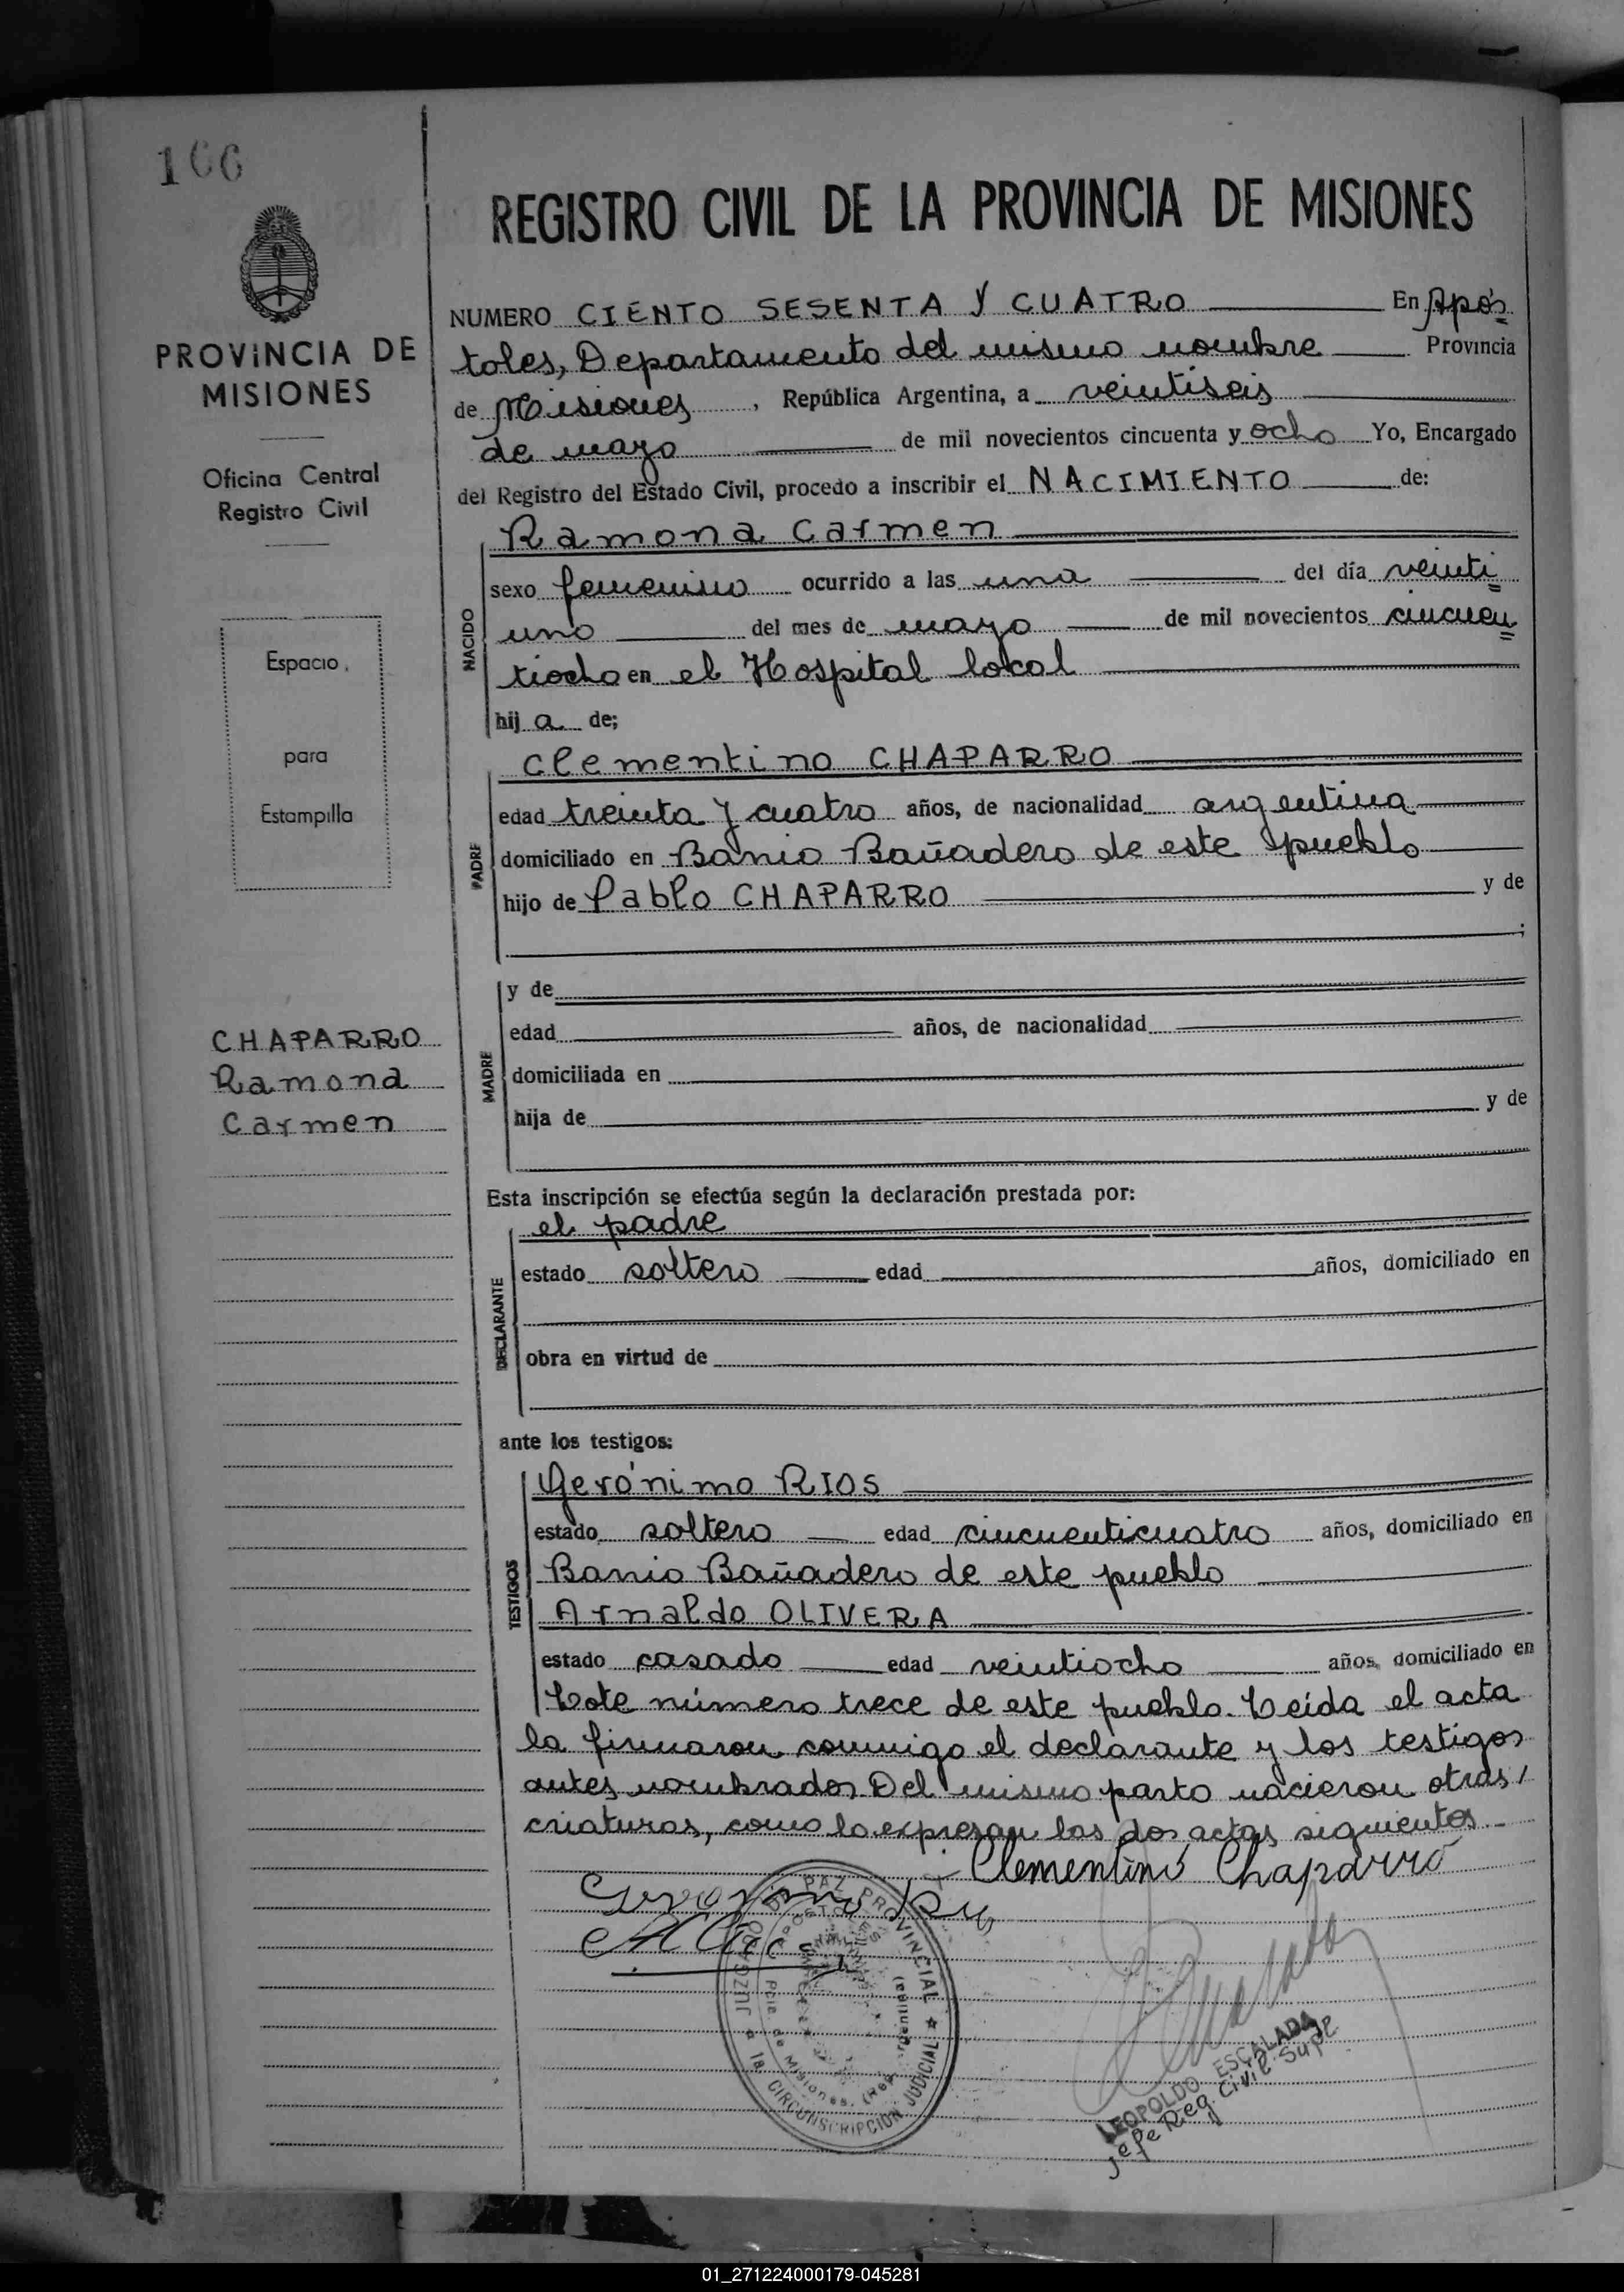 166
REGISTRO CIVIL DE LA PROVINCIA DE MISIONES
PROVINCIA DE
MISIONES
Oficina Central
Registro Civil
Espacio
para
Estampilla
CHAPARRO
Ramona
Carmen
NUMERO CIENTO SESENTA Y CUATRO En Após
toles, Departamento del mismo nombre Provincia
de Misiones, República Argentina, a veintiseis
de mayo de mil novecientos cincuenta y ocho Yo, Encargado
del Registro del Estado Civil, procedo a inscribir el NACIMIENTO de:
NACIDO
Ramona Carmen
sexo femenino ocurrido a las una del día veinti
uno del mes de mayo de mil novecientos cincuen
tiocho en el Hospital local
hij a de;
PADRE
Clementino CHAPARRO
edad treinta y cuatro años, de nacionalidad argentina
domiciliado en Barrio Bañadero de este pueblo
hijo de Pablo CHAPARRO y de
;
MADRE
y de
edad años, de nacionalidad
domiciliada en
hija de y de
Esta inscripción se efectúa según la declaración prestada por:
DECLARANTE
el padre
estado soltero edad años, domiciliado en
obra en virtud de
ante los testigos:
TESTIGOS
Gerónimo RIOS
estado soltero edad cincuenticuatro años, domiciliado en
Barrio Bañadero de este pueblo
Arnaldo OLIVERA
estado casado edad veintiocho años, domiciliado en
Lote número trece de este pueblo. Leída el acta
la firmaron conmigo el declarante y los testigos
antes nombrados Del mismo parto nacieron otras
criaturas, como lo expresan las dos actas siguientes.-
Clementino Chaparro
JUZGADO DE PAZ PROVINCIAL
APOSTOLES
Pcia de Misiones. (Rep. Argentina)
1a CIRCUNSCRIPCIÓN JUDICIAL
LEOPOLDO ESCALADA
Jefe Reg. Civil Supl
01_271224000179-045281